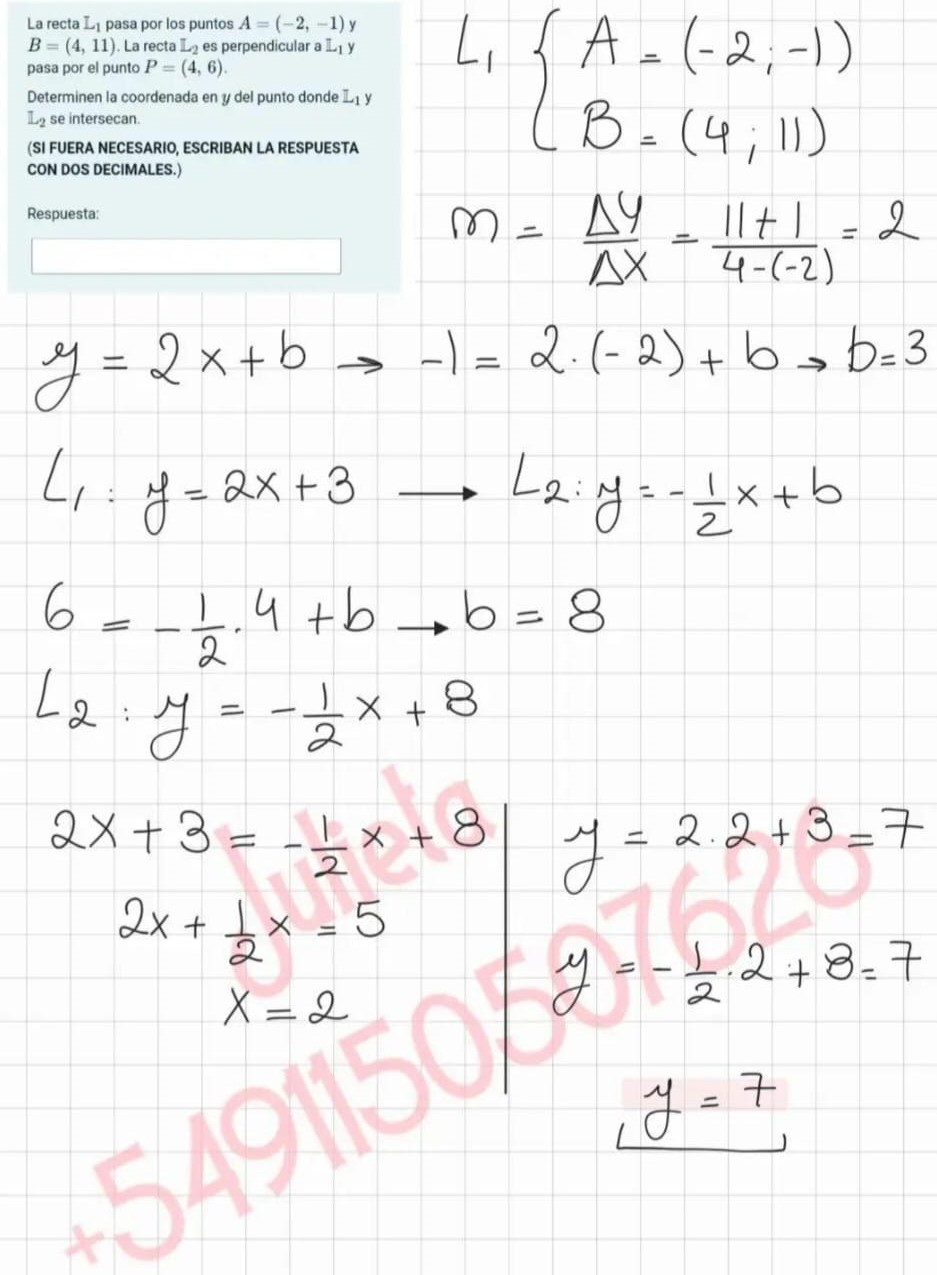 La recta 𝕃₁ pasa por los puntos A = (−2, −1) y
B = (4, 11). La recta 𝕃₂ es perpendicular a 𝕃₁ y
pasa por el punto P = (4, 6).
Determinen la coordenada en y del punto donde 𝕃₁ y
𝕃₂ se intersecan.
(SI FUERA NECESARIO, ESCRIBAN LA RESPUESTA
CON DOS DECIMALES.)
Respuesta:
L₁ { A = (-2 ; -1)
B = (4 ; 11)
m = ΔY/ΔX = (11+1)/(4-(-2)) = 2
y = 2x + b → -1 = 2·(-2) + b → b=3
L₁ : y = 2x + 3 → L₂ : y = -1/2 x + b
6 = -1/2 · 4 + b → b = 8
L₂ : y = -1/2 x + 8
2x + 3 = -1/2 x + 8
2x + 1/2 x = 5
x = 2
y = 2·2 + 3 = 7
y = -1/2 · 2 + 8 = 7
y = 7
Julieta
+5491150507626